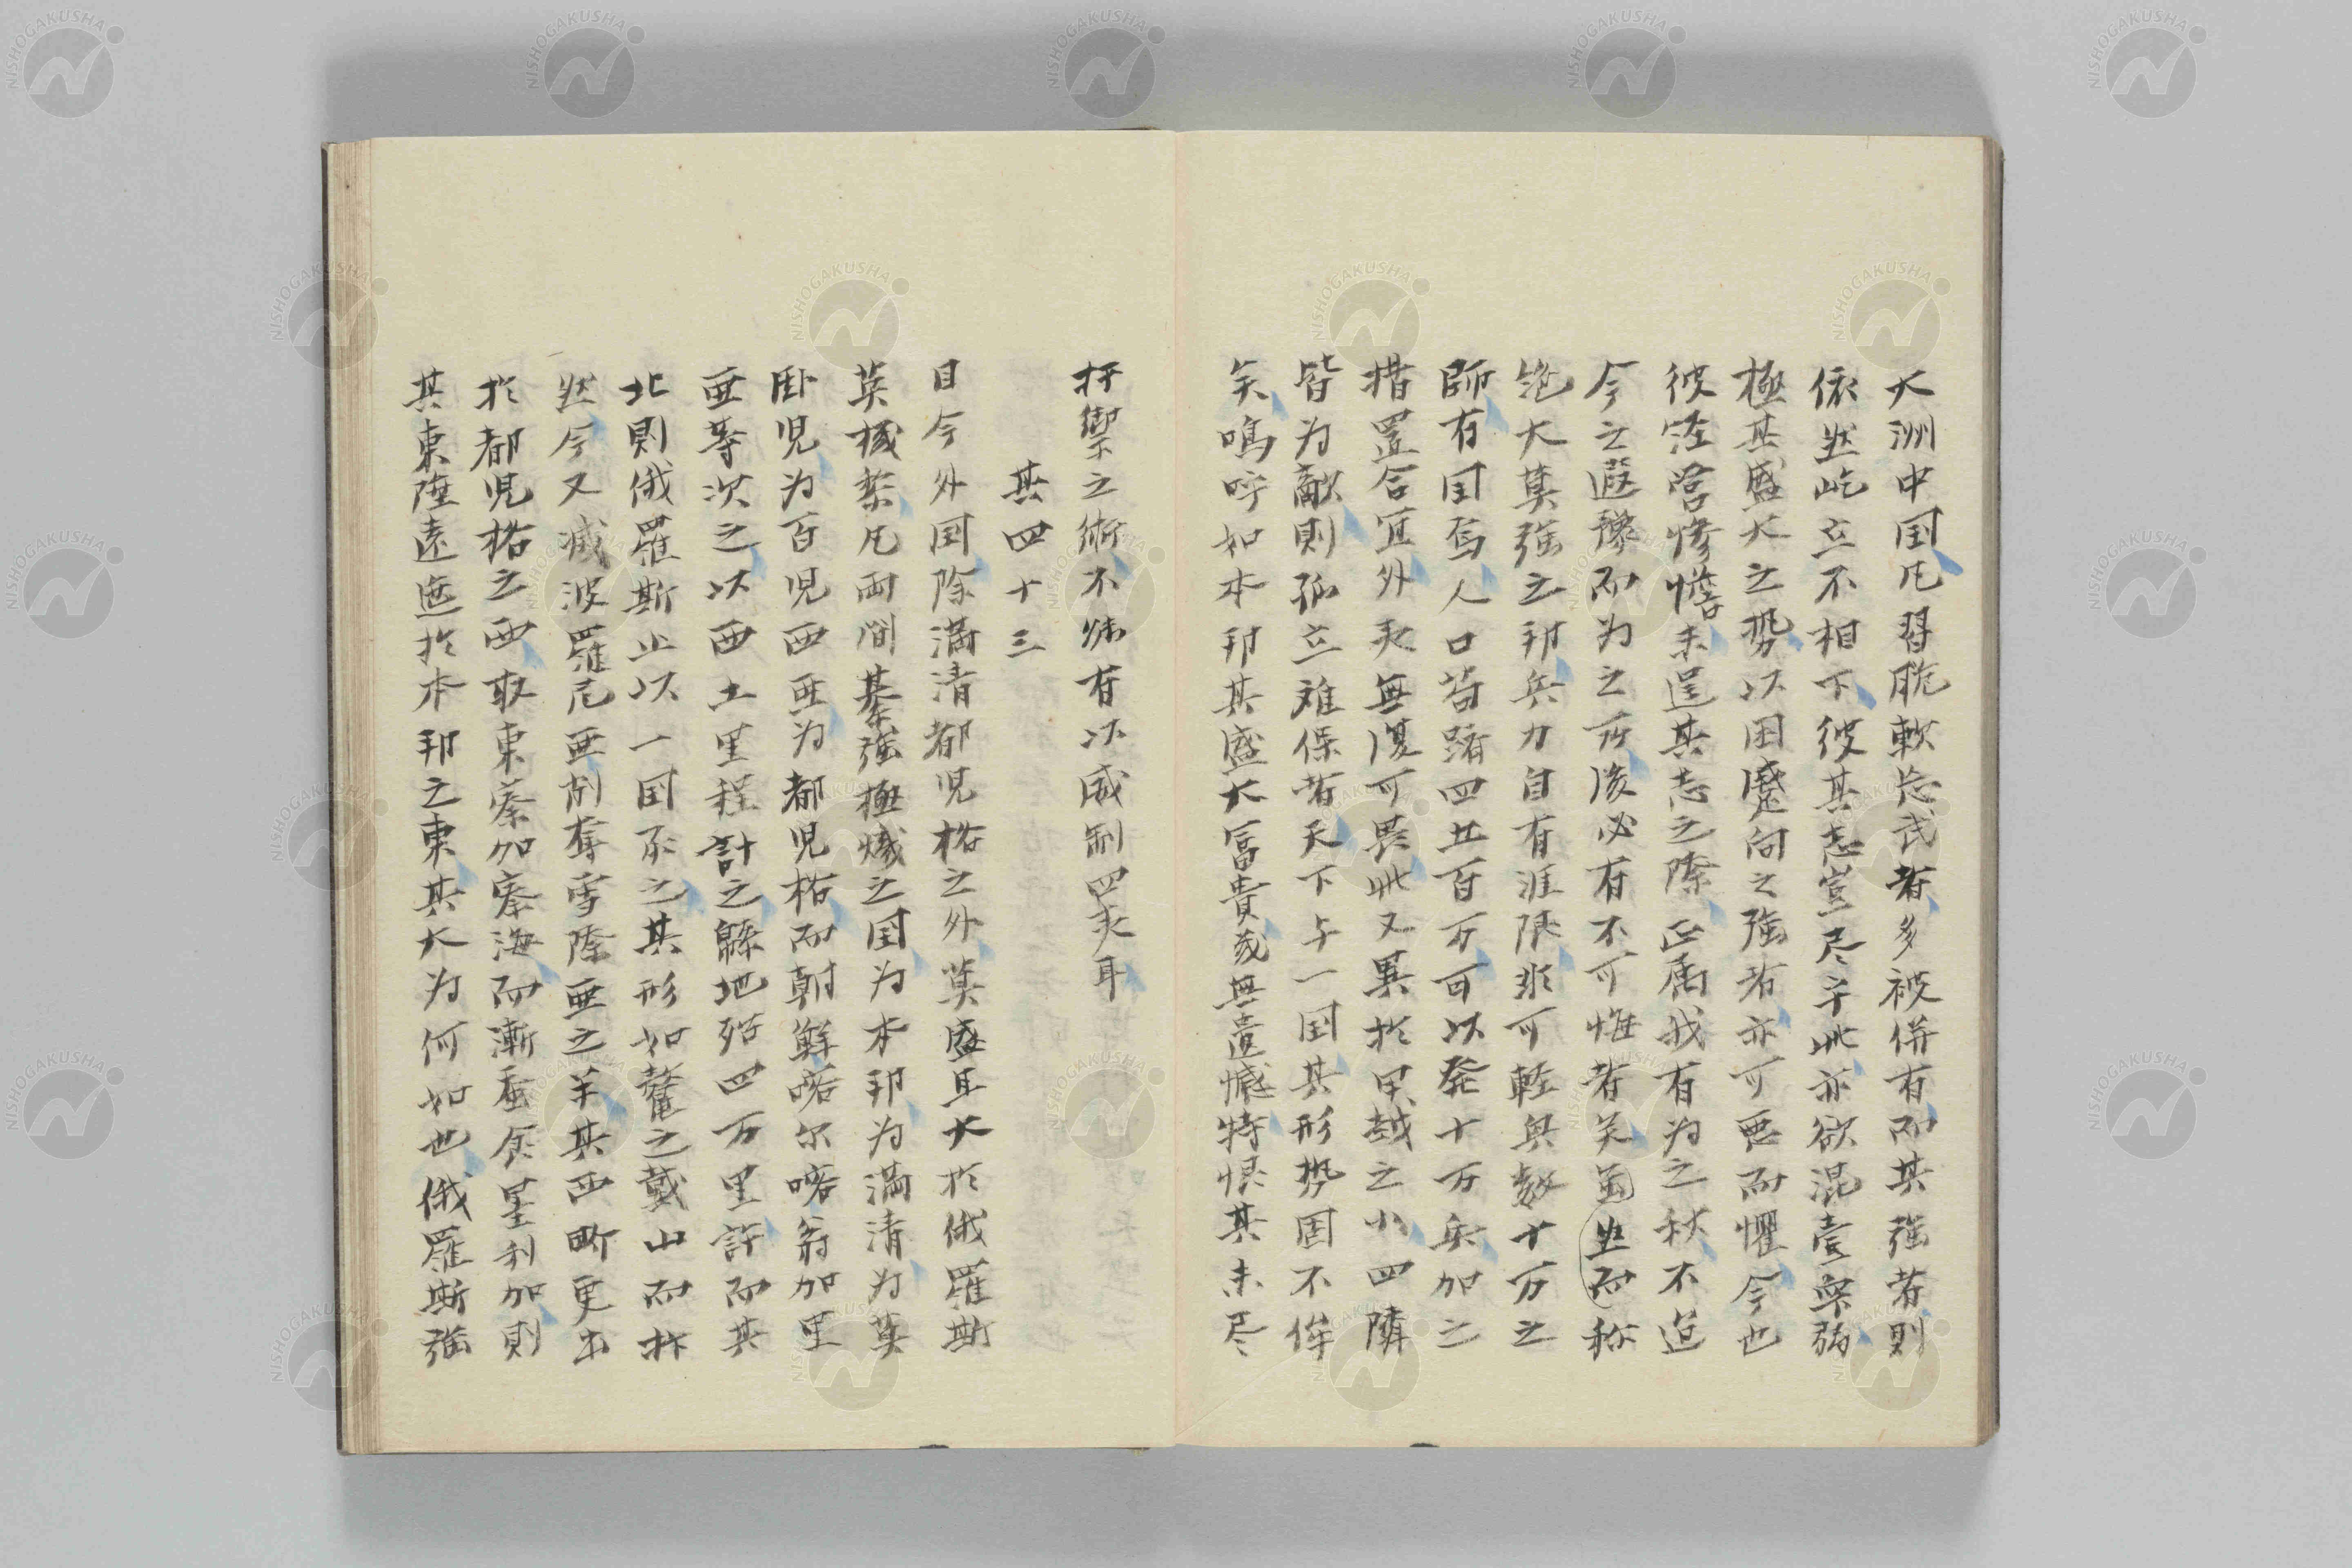 大洲中国凡習脆軟忘武者多被併有而其強者則
依然屹立不相下彼其志豈尽于此亦欲混壹宇弱
極其盛大之勢以困蹙向之強者亦可悪而懼今也
彼経営惨憺未逞其志之際正属我有為之秋不迨
今之遐豫而為之所後必有不可悔者矣虽然而称
絶大莫強之邦兵力自有涯限非可輕與数十万之
師有国焉人口苟踰四五百万可以発十万兵加之
措置合宜外夷無復可畏此又異於甲越之小四隣
皆为敵則孤立难保者天下与一国其形勢固不侔
矣嗚呼如本邦其盛大富貴或無遺憾特恨其未尽
扞禦之術不怵有以威制四夷耳
其四十三
目今外国除満清都児格之外莫盛且大於俄羅斯
英機黎凡両間棊強極熾之国為本邦為満清为莫
卧児为百児西亜为都児格而朝鮮喀尔喀翁加里
亜等次之以西土里程計之緜地殆四万里許而其
北則俄羅斯止以一国承之其形如鼇之戴山而抃
然今又滅波羅尼亜割奪雪際亜之半其西略更出
於都児格之西取東察加察海而漸蚕食墨利加則
其東陲遠迤於本邦之東其大为何如也俄羅斯強
NISHOGAKUSHA